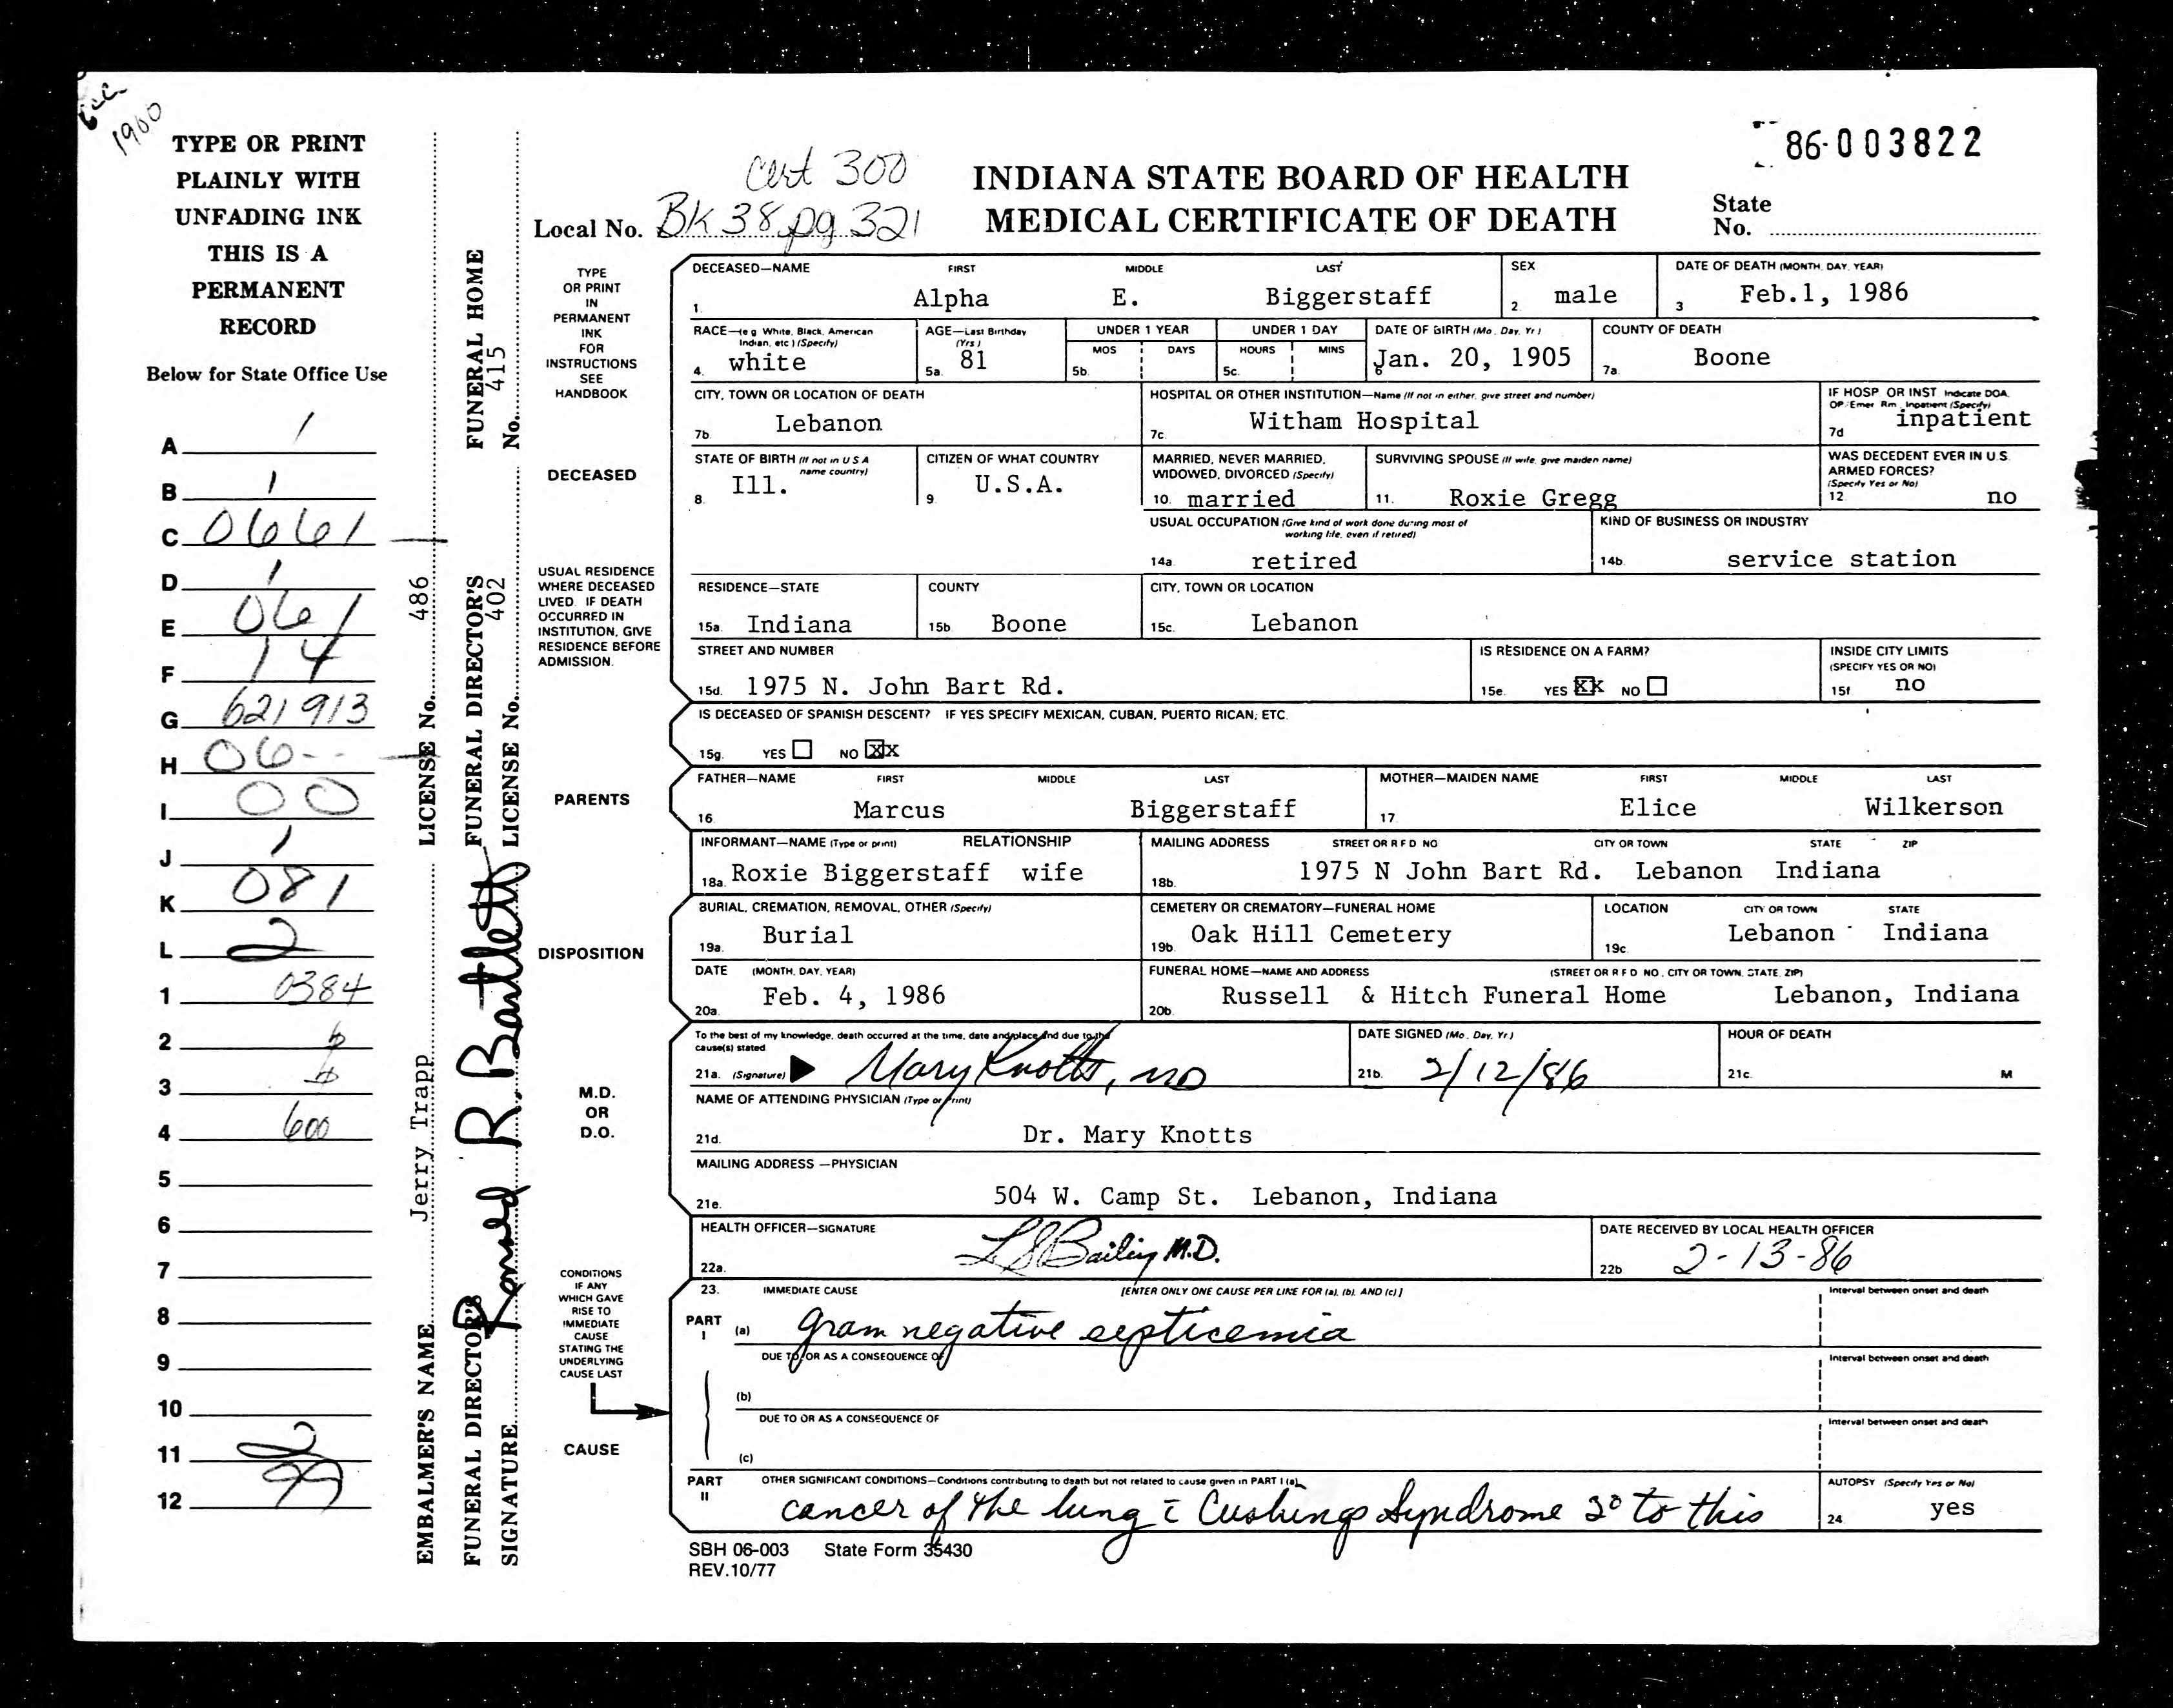 1960
TYPE OR PRINT
PLAINLY WITH
UNFADING INK
THIS IS A
PERMANENT
RECORD
Below for State Office Use
A 1
B 1
C 0661
D 1
E 061
F 14
G 621913
H 06--
I 00
J 1
K 081
L 2
1 0384
2
3
4 600
5
6
7
8
9
10
11 2
12 99
EMBALMER'S NAME Jerry Trapp LICENSE No. 486
FUNERAL DIRECTOR'S SIGNATURE Ronald R. Bartlett FUNERAL DIRECTOR'S LICENSE No. 402 FUNERAL HOME No. 415
86-003822
cert 300
INDIANA STATE BOARD OF HEALTH
MEDICAL CERTIFICATE OF DEATH
Local No. Bk 38 pg 321
State
No.
TYPE
OR PRINT
IN
PERMANENT
INK
FOR
INSTRUCTIONS
SEE
HANDBOOK
DECEASED—NAME FIRST MIDDLE LAST SEX DATE OF DEATH (MONTH, DAY, YEAR)
1. Alpha E. Biggerstaff 2. male 3 Feb.1, 1986
RACE—(e g White, Black, American Indian, etc ) (Specify) AGE—Last Birthday (Yrs ) UNDER 1 YEAR UNDER 1 DAY DATE OF BIRTH (Mo , Day, Yr ) COUNTY OF DEATH
MOS DAYS HOURS MINS
4. white 5a. 81 5b. 5c. 6 Jan. 20, 1905 7a. Boone
CITY, TOWN OR LOCATION OF DEATH HOSPITAL OR OTHER INSTITUTION—Name (If not in either, give street and number) IF HOSP OR INST Indicate DOA, OP/Emer Rm , Inpatient (Specify)
7b. Lebanon 7c. Witham Hospital 7d inpatient
DECEASED
STATE OF BIRTH (If not in U S A name country) CITIZEN OF WHAT COUNTRY MARRIED, NEVER MARRIED, WIDOWED, DIVORCED (Specify) SURVIVING SPOUSE (If wife, give maiden name) WAS DECEDENT EVER IN U.S. ARMED FORCES? (Specify Yes or No)
8. Ill. 9. U.S.A. 10. married 11. Roxie Gregg 12 no
USUAL OCCUPATION (Give kind of work done during most of working life, even if retired) KIND OF BUSINESS OR INDUSTRY
14a retired 14b. service station
USUAL RESIDENCE
WHERE DECEASED
LIVED. IF DEATH
OCCURRED IN
INSTITUTION, GIVE
RESIDENCE BEFORE
ADMISSION.
RESIDENCE—STATE COUNTY CITY, TOWN OR LOCATION
15a. Indiana 15b. Boone 15c. Lebanon
STREET AND NUMBER IS RESIDENCE ON A FARM? INSIDE CITY LIMITS (SPECIFY YES OR NO)
15d. 1975 N. John Bart Rd. 15e. YES XX NO 15f no
IS DECEASED OF SPANISH DESCENT? IF YES SPECIFY MEXICAN, CUBAN, PUERTO RICAN, ETC.
15g. YES NO XX
PARENTS
FATHER—NAME FIRST MIDDLE LAST MOTHER—MAIDEN NAME FIRST MIDDLE LAST
16. Marcus Biggerstaff 17. Elice Wilkerson
INFORMANT—NAME (Type or print) RELATIONSHIP MAILING ADDRESS STREET OR R F D NO CITY OR TOWN STATE ZIP
18a. Roxie Biggerstaff wife 18b. 1975 N John Bart Rd. Lebanon Indiana
DISPOSITION
BURIAL, CREMATION, REMOVAL, OTHER (Specify) CEMETERY OR CREMATORY—FUNERAL HOME LOCATION CITY OR TOWN STATE
19a. Burial 19b. Oak Hill Cemetery 19c. Lebanon Indiana
DATE (MONTH, DAY, YEAR) FUNERAL HOME—NAME AND ADDRESS (STREET OR R F D NO , CITY OR TOWN, STATE, ZIP)
20a. Feb. 4, 1986 20b. Russell & Hitch Funeral Home Lebanon, Indiana
M.D.
OR
D.O.
To the best of my knowledge, death occurred at the time, date and place and due to the cause(s) stated DATE SIGNED (Mo , Day, Yr ) HOUR OF DEATH
21a. (Signature) Mary Knotts, MD 21b. 2/12/86 21c. M
NAME OF ATTENDING PHYSICIAN (Type or Print)
21d. Dr. Mary Knotts
MAILING ADDRESS —PHYSICIAN
21e. 504 W. Camp St. Lebanon, Indiana
HEALTH OFFICER—SIGNATURE DATE RECEIVED BY LOCAL HEALTH OFFICER
22a. LS Bailey M.D. 22b 2-13-86
CONDITIONS
IF ANY
WHICH GAVE
RISE TO
IMMEDIATE
CAUSE
STATING THE
UNDERLYING
CAUSE LAST
CAUSE
23. IMMEDIATE CAUSE [ENTER ONLY ONE CAUSE PER LINE FOR (a), (b), AND (c) ] Interval between onset and death
PART I (a) gram negative septicemia
DUE TO, OR AS A CONSEQUENCE OF Interval between onset and death
(b)
DUE TO OR AS A CONSEQUENCE OF Interval between onset and death
(c)
PART II OTHER SIGNIFICANT CONDITIONS—Conditions contributing to death but not related to cause given in PART I (a) AUTOPSY (Specify Yes or No)
cancer of the lung c̄ Cushings Syndrome 2° to this 24 yes
SBH 06-003 State Form 35430
REV.10/77